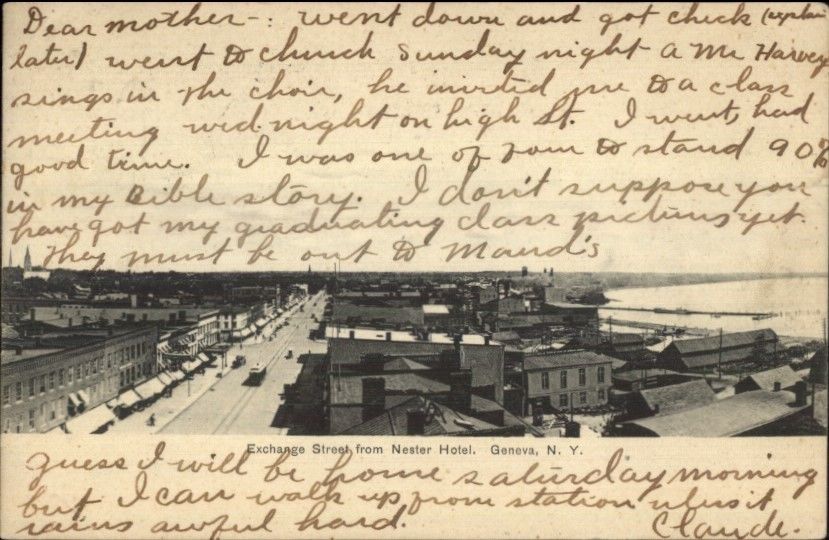 Dear mother-: went down and got check (explain
later) went to church Sunday night a Mr Harvey
sings in the choir, he invited me to a class
meeting wed. night on high St. I went, had
good time. I was one of four to stand 90%
in my Bible story. I don't suppose you
have got my graduating class pictures yet.
They must be out to Maud's
Exchange Street from Nester Hotel. Geneva, N. Y.
Guess I will be home saturday morning
but I can walk up from station unless it
rains awful hard. Claude.